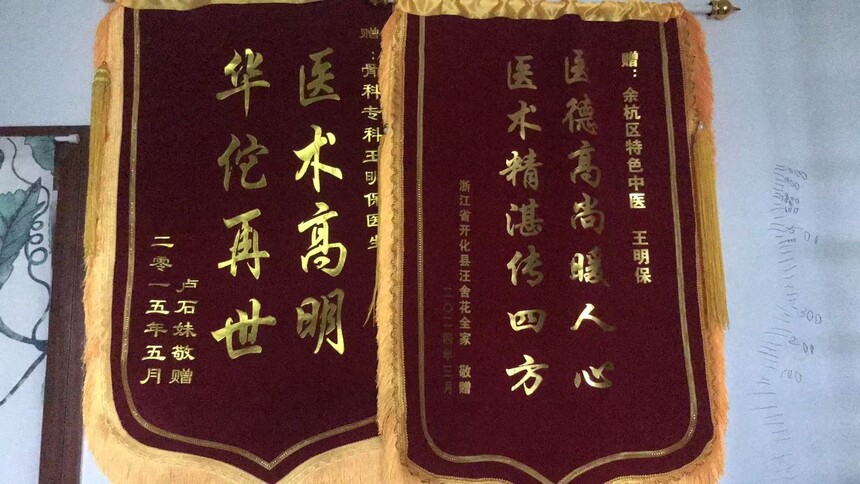 赠：骨科专科王明保医生
医术高明
华佗再世
卢石妹敬赠
二零一五年五月
赠：余杭区特色中医 王明保
医德高尚暖人心
医术精湛传四方
浙江省开化县汪舍花全家 敬赠
二〇二四年三月
500
200
100